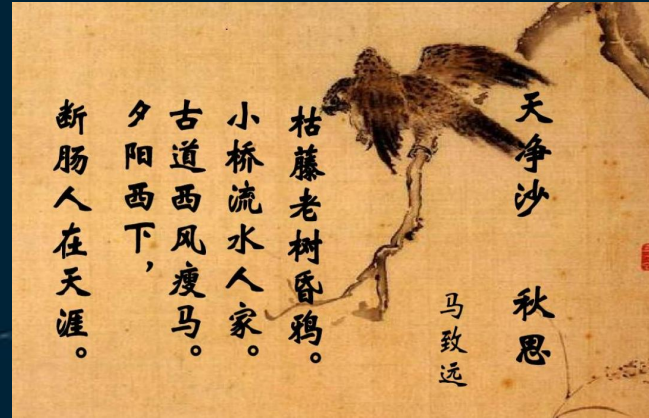 天争沙 秋思
马致远
枯藤老树昏鸦。
小桥流水人家。
古道西风瘦马。
夕阳西下,
断肠人在天涯。